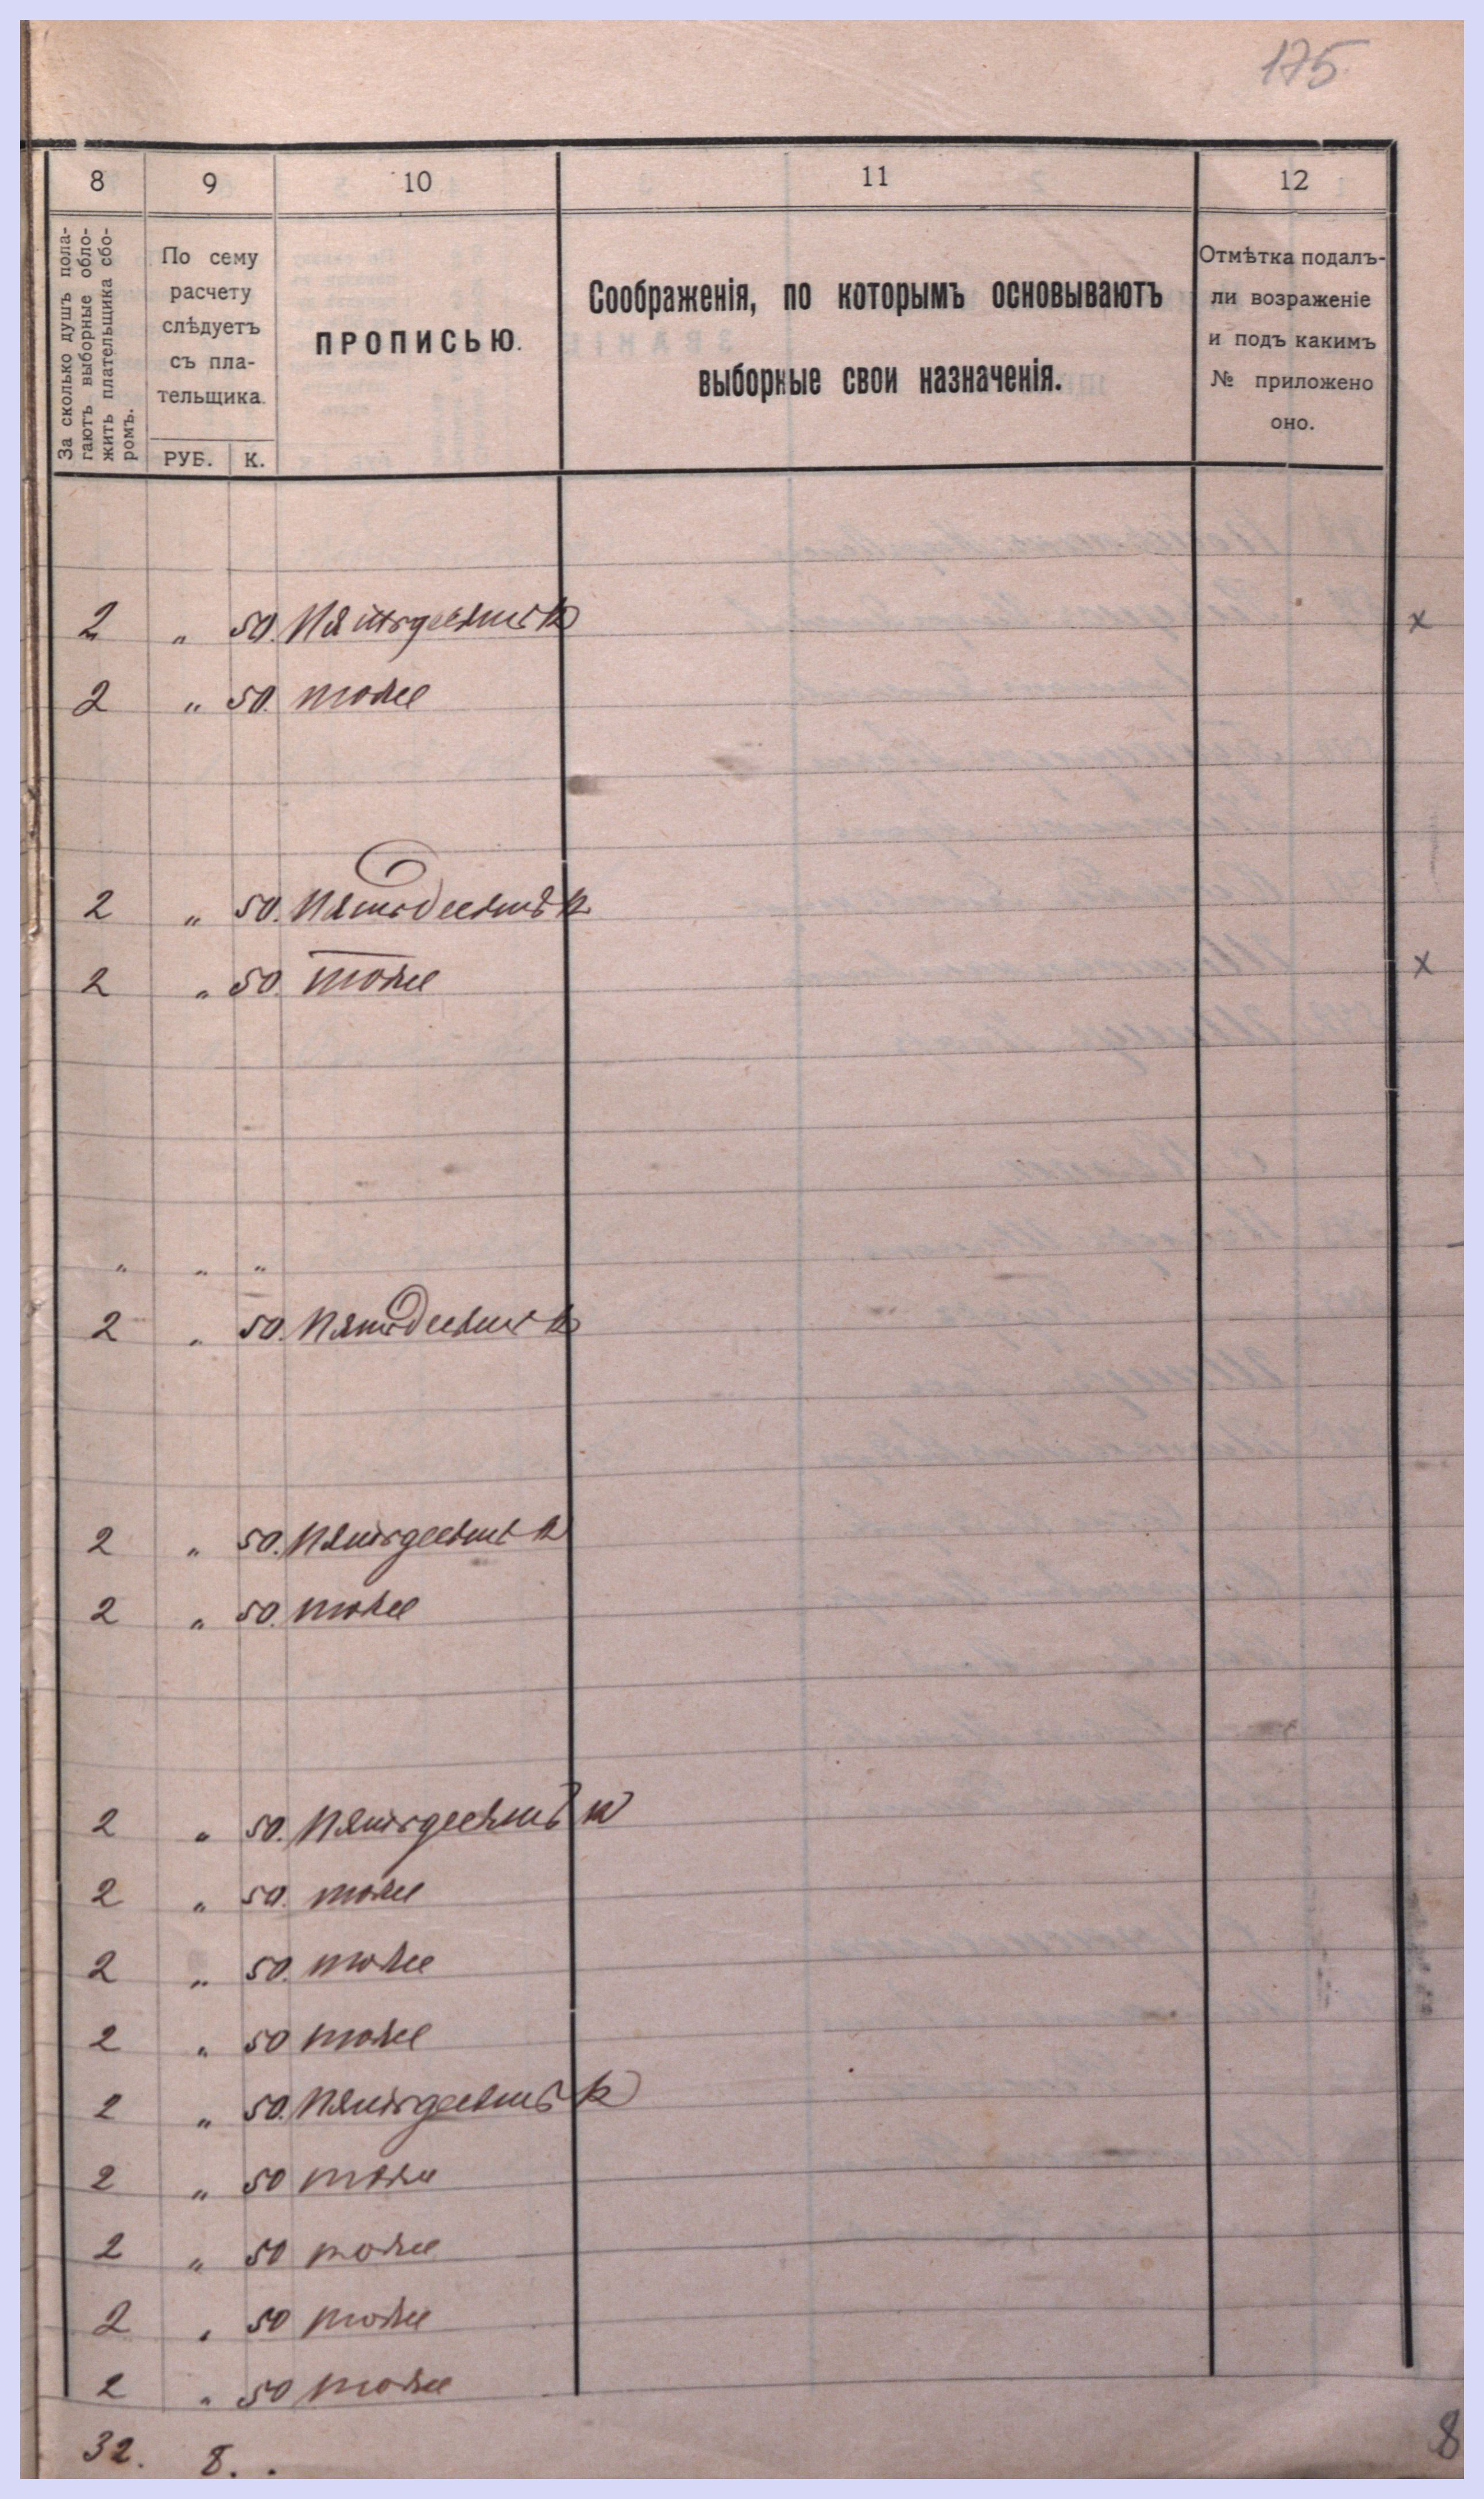 175
8 9 10 11 12
За сколько душъ пола-
гаютъ выборные обло-
жить плательщика сбо-
ромъ.
По сему
расчету
слѣдуетъ
съ пла-
тельщика.
РУБ. К.
ПРОПИСЬЮ.
Соображенія, по которымъ основываютъ
выборные свои назначенія.
Отмѣтка подалъ-
ли возраженіе
и подъ какимъ
№ приложено
оно.
2 „ 50. Пятьдесятъ к x
2 „ 50. тоже
2 „ 50. Пятьдесятъ к
2 „ 50. тоже x
„ „ „
2 „ 50. Пятьдесятъ к
2 „ 50. Пятьдесятъ к
2 „ 50. тоже
2 „ 50. Пятьдесятъ к
2 „ 50. тоже
2 „ 50. тоже
2 „ 50 тоже
2 „ 50. Пятьдесятъ к
2 „ 50 тоже
2 „ 50 тоже
2 „ 50 тоже
2 „ 50 тоже
32. 8. .
8